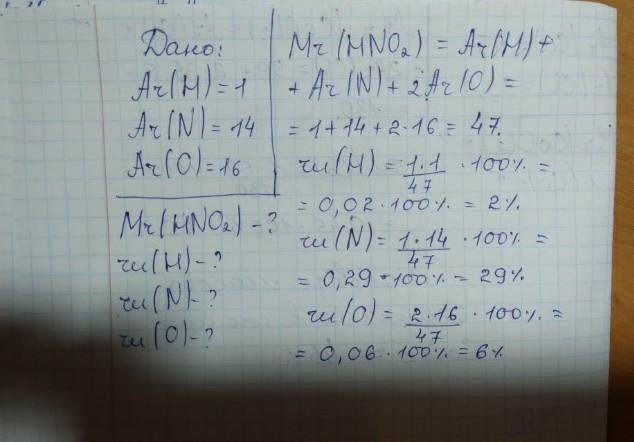 Дано:
Ar(H)=1
Ar(N)=14
Ar(O)=16
Mr(HNO₂)-?
ω(H)-?
ω(N)-?
ω(O)-?
Mr(HNO₂) = Ar(H)+
+ Ar(N)+2Ar(O)=
=1+14+2·16=47.
ω(H)=1·1/47·100%=
=0,02·100%=2%
ω(N)=1·14/47·100%=
=0,29·100%=29%
ω(O)=2·16/47·100%.=
=0,06·100%=6%